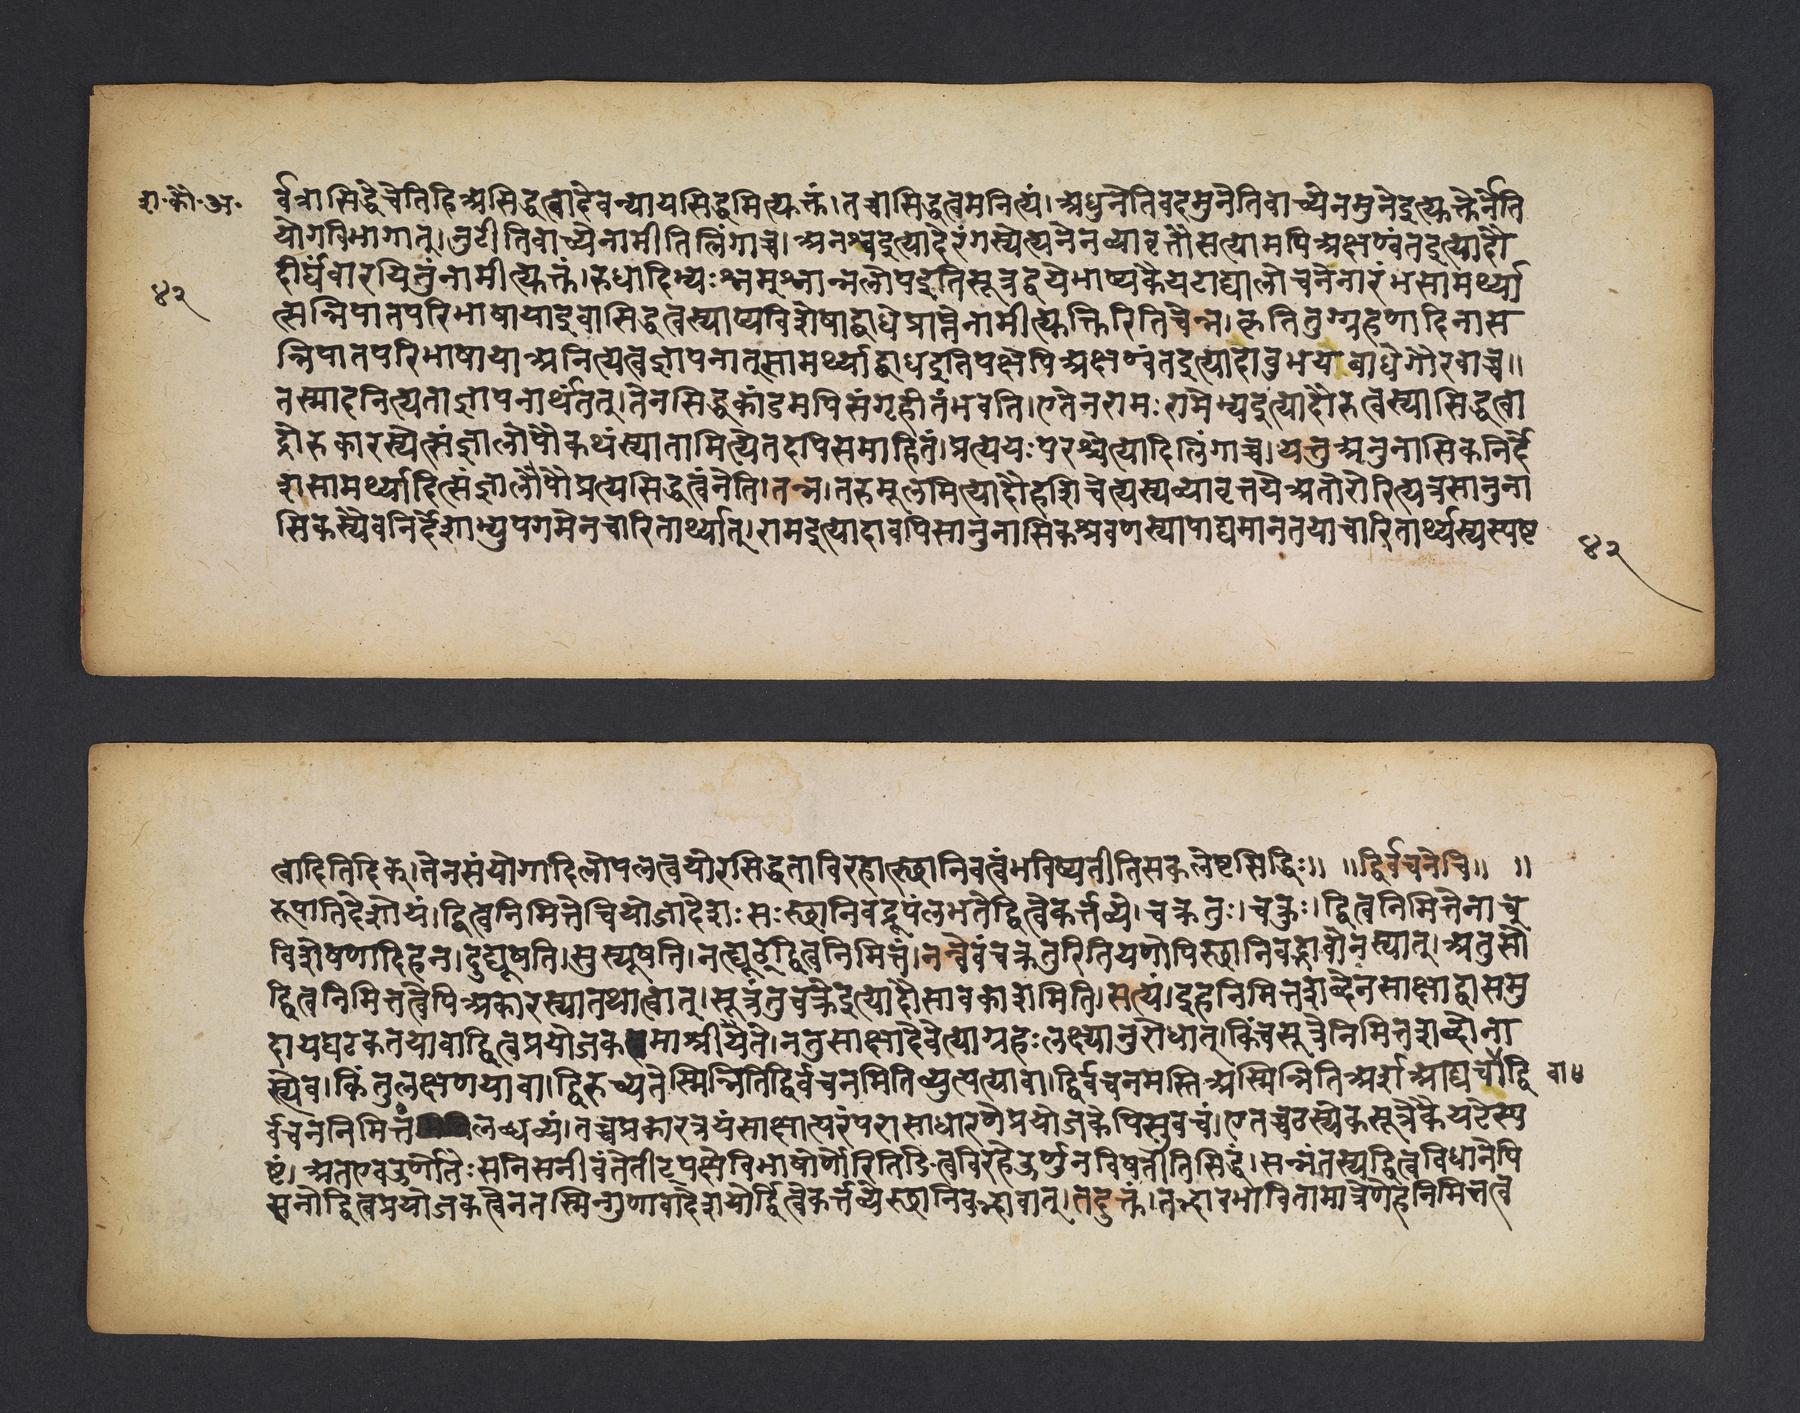 श॰ कौ॰ अ॰
४२
र्वत्रासिद्धेचेतिहिअसिद्धत्वादेवन्यायसिद्धमित्युक्तं।तच्चासिद्धत्वमनित्यं।अधुनेतिवदमुनेतिवाच्येनमुनेइत्युक्तेर्नेति
योगविभागात्।नुटीतिवाच्येनामीतिलिंगाच्च।अनश्वइत्यादेरंगस्येत्यनेनव्यावृत्तौसत्यामपिअक्षण्वंतइत्यादौ
दीर्घंवारयितुंनामीत्युक्तं।रुधादिभ्यःश्नम्श्नान्नलोपइतिसूत्रद्वयेभाष्यकैयटाद्यालोचनेनारंभसामर्थ्या
त्सन्निपातपरिभाषायाइवासिद्धत्वस्याप्यविशेषाद्बाधेप्राप्तेनामीत्युक्तिरितिचेन्न।कृतितुग्ग्रहणादिनास
न्निपातपरिभाषायाअनित्यत्वज्ञापनात्सामर्थ्याद्बाधइतिपक्षेपिअक्षण्वंतइत्यादावुभयाबाधेगौरवाच्च॥
तस्मादनित्यताज्ञापनार्थंतत्।तेनसिद्धकांडमपिसंगृहीतंभवति।एतेनरामःरामेभ्यइत्यादौरुत्वस्यासिद्धत्वा
द्रोरुकारस्येत्संज्ञालोपौकथंस्यातामित्येतदपिसमाहितं।प्रत्ययःपरश्चेत्यादिलिंगाच्च।यत्तुअनुनासिकनिर्दे
शसामर्थ्यादित्संज्ञालोपौप्रत्यसिद्धत्वंनेति।तन्न।तरुमूलमित्यादौहशिचेत्यस्यव्यावृत्तयेअतोरोरित्यत्रसानुना
सिकस्यैवनिर्देशाभ्युपगमेनचारितार्थ्यात्।रामइत्यादावपिसानुनासिकश्रवणस्यापाद्यमानतयाचारितार्थ्यस्यस्पष्ट
४२
त्वादितिदिक्।तेनसंयोगादिलोपलत्वयोरसिद्धताविरहात्स्थानिवत्वंभविष्यतीतिसकलेष्टसिद्धिः॥ ॥द्विर्वचनेचि॥ ॥
रूपातिदेशोयं।द्वित्वनिमित्तेचियोजादेशःसःस्थानिवद्रूपंलभतेद्वित्वेकर्त्तव्ये।चक्रतुः।चक्रुः।द्वित्वनिमित्तेनाचु
विशेषणादिहन।दुद्यूषति।सुस्यूषति।नत्यूठ्द्वित्वनिमित्तं।नन्वेवंचक्रतुरितियणोपिस्थानिवद्भावोनस्यात्।अतुसो
द्वित्वनिमित्तत्वेपिअकारस्यातथात्वात्।सूत्रंतुचक्रेइत्यादौसावकाशमिति।सत्यं।इहनिमित्तशब्देनसाक्षाद्वासमु
दायघटकतयावाद्वित्वप्रयोजकत्वमाश्रीयते।नतुसाक्षादेवेत्याग्रहःलक्ष्यानुरोधात्।किंचसूत्रेनिमित्तशब्दोना
स्त्येव।किंतुलक्षणयावा।द्विरुच्यतेस्मिन्नितिद्विर्वचनमितिव्युत्पत्यावा।द्विर्वचनमस्तिअस्मिन्नितिअर्शआद्यचाद्वि वा४
र्वचननिमित्तंलब्धव्यं।तच्चप्रकारत्रयंसाक्षात्परंपरासाधारणेप्रयोजकेपिसुवचं।एतच्चठस्येकसूत्रेकैयटेस्प
ष्टं।अतएवऊर्णोतेःसनिसनीवंतेतीट्पक्षेविभाषोर्णोरितिङित्वविरहेऊर्णुनविषतीतिसिद्धं।सन्नंतस्यद्वित्वविधानेपि
सनोद्वित्वप्रयोजकत्वेनतस्मिन्गुणावादेशयोर्द्वित्वेकर्त्तव्येस्थानिवद्भावात्।तदुक्तं।तद्भावभावितामात्रेणेहनिमित्तत्वे